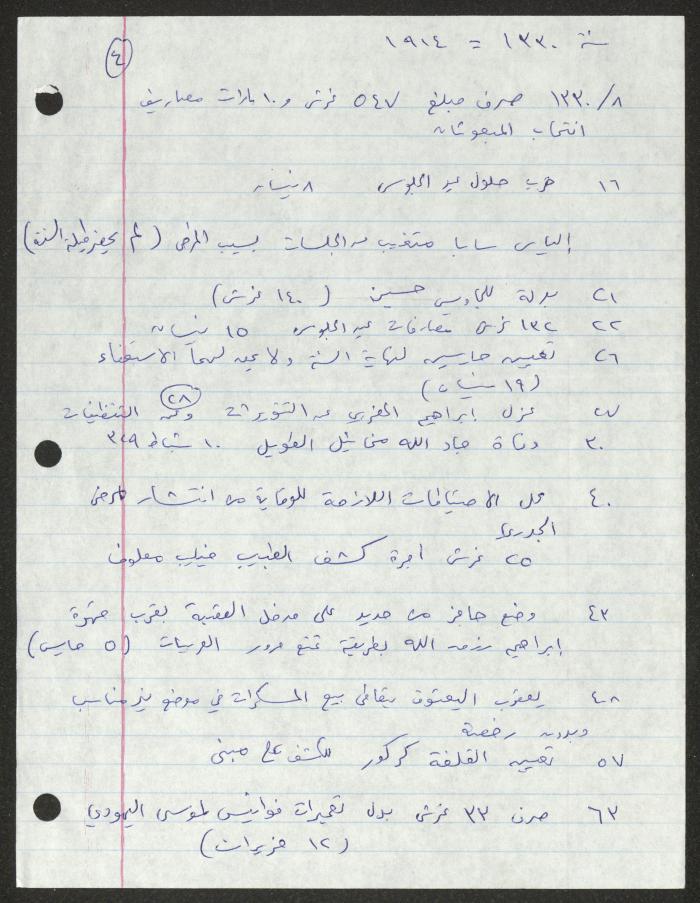 سنة ١٣٣٠ = ١٩١٤
٤
١٣٣٠/٨ صرف مبلغ ٥٤٧ غرش و ١٠ بارات مصاريف
انتخاب المبعوثان
١٦ قرب حلول عيد الجلوس ٨ نيسان
الياس سابا متغيب عن الجلسات بسبب المرض (لم يحضر طيلة السنة)
٢١ بدلة للجاويس حسين (١٤٠ غرش)
٢٢ ١٣٢ غرش مصارفات عيد الجلوس ١٥ نيسان
٢٦ تعيين حارسين لنهاية السنة ولا يحق لهما الاستعفاء
(١٩ نيسان)
٢٧ عزل ابراهيم المغربي عن التنويرات و ٢٨ عن التنظيفات
٣٠ وفاة جاد الله مخائيل الطويل ١٠ شباط ٣٢٩
٤٠ عمل الاحتياطات اللازمة للوقاية من انتشار مرض
الجدري
٢٥ غرش اجرة كشف الطبيب فيليب معلوف
٤٣ وضع حاجز من حديد على مدخل العقبة بقرب قهوة
إبراهيم رزق الله بطريقة تمنع مرور العربيات (٥ مايس)
٤٨ يعقوب اليعتون يتعاطى بيع المسكرات في موضع غير مناسب
وبدون رخصة
٥٧ تعيين القلفة كركور للكشف على مبنى
٦٣ صرف ٣٣ غرش بدل تعميرات فوانيس لموسى اليهودي
(١٢ حزيران)